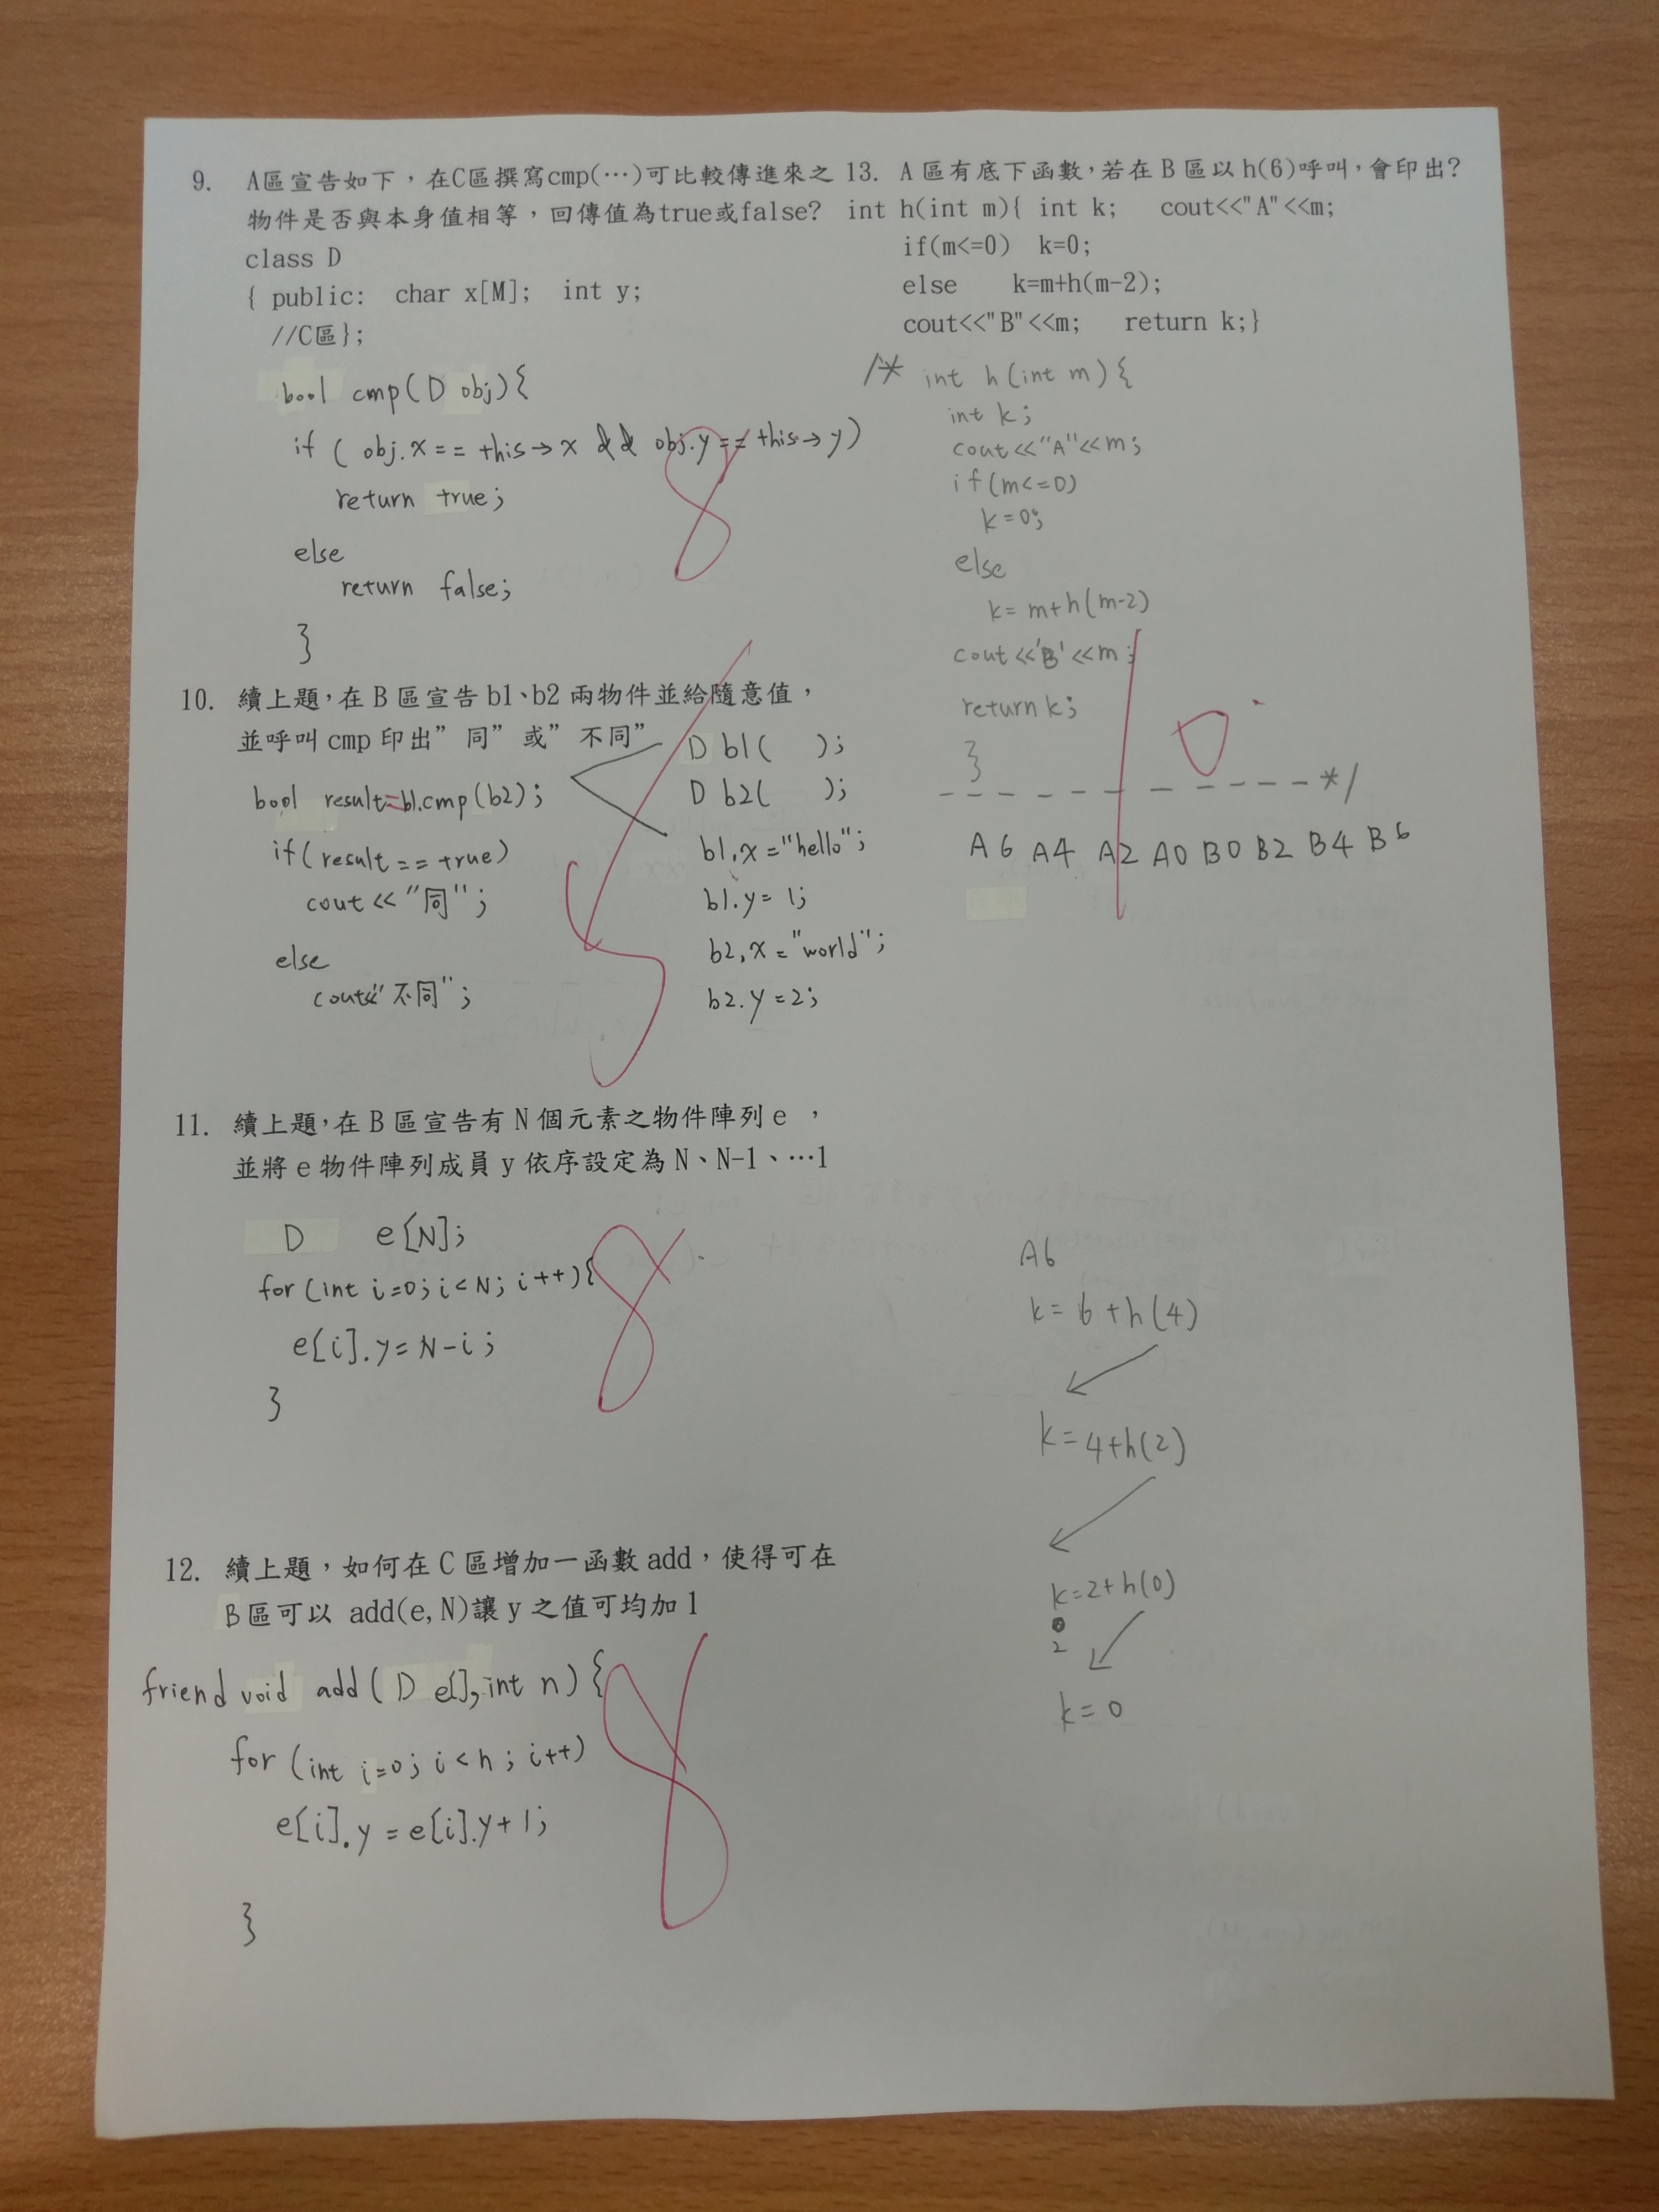 9. A區宣告如下，在C區撰寫cmp(…)可比較傳進來之
物件是否與本身值相等，回傳值為true或false?
class D
{ public: char x[M]; int y;
//C區};
bool cmp(D obj){
if ( obj.x == this→x && obj.y == this→y)
return true;
else
return false;
}
8
10. 續上題，在 B 區宣告 b1、b2 兩物件並給隨意值，
並呼叫 cmp 印出”同”或”不同”
bool result=b1.cmp(b2);
if(result == true)
cout << "同";
else
cout<<"不同";
D b1( );
D b2( );
b1.x = "hello";
b1.y = 1;
b2.x = "world";
b2.y = 2;
5
11. 續上題，在 B 區宣告有 N 個元素之物件陣列 e ，
並將 e 物件陣列成員 y 依序設定為 N、N-1、…1
D e[N];
for(int i=0; i<N; i++){
e[i].y= N-i;
}
8
12. 續上題，如何在 C 區增加一函數 add，使得可在
B 區可以 add(e,N)讓 y 之值可均加 1
friend void add( D e[], int n) {
for (int i=0; i<n; i++)
e[i].y = e[i].y+1;
}
8
13. A 區有底下函數，若在 B 區以 h(6)呼叫，會印出?
int h(int m){ int k; cout<<"A"<<m;
if(m<=0) k=0;
else k=m+h(m-2);
cout<<"B"<<m; return k;}
/* int h(int m){
int k;
cout<<"A"<<m;
if(m<=0)
k=0;
else
k= m+h(m-2)
cout<<'B'<<m;
return k;
}
- - - - - - - - - - - */
10
A6 A4 A2 A0 B0 B2 B4 B6
A6
k= 6+h(4)
k=4+h(2)
k=2+h(0)
2
k=0